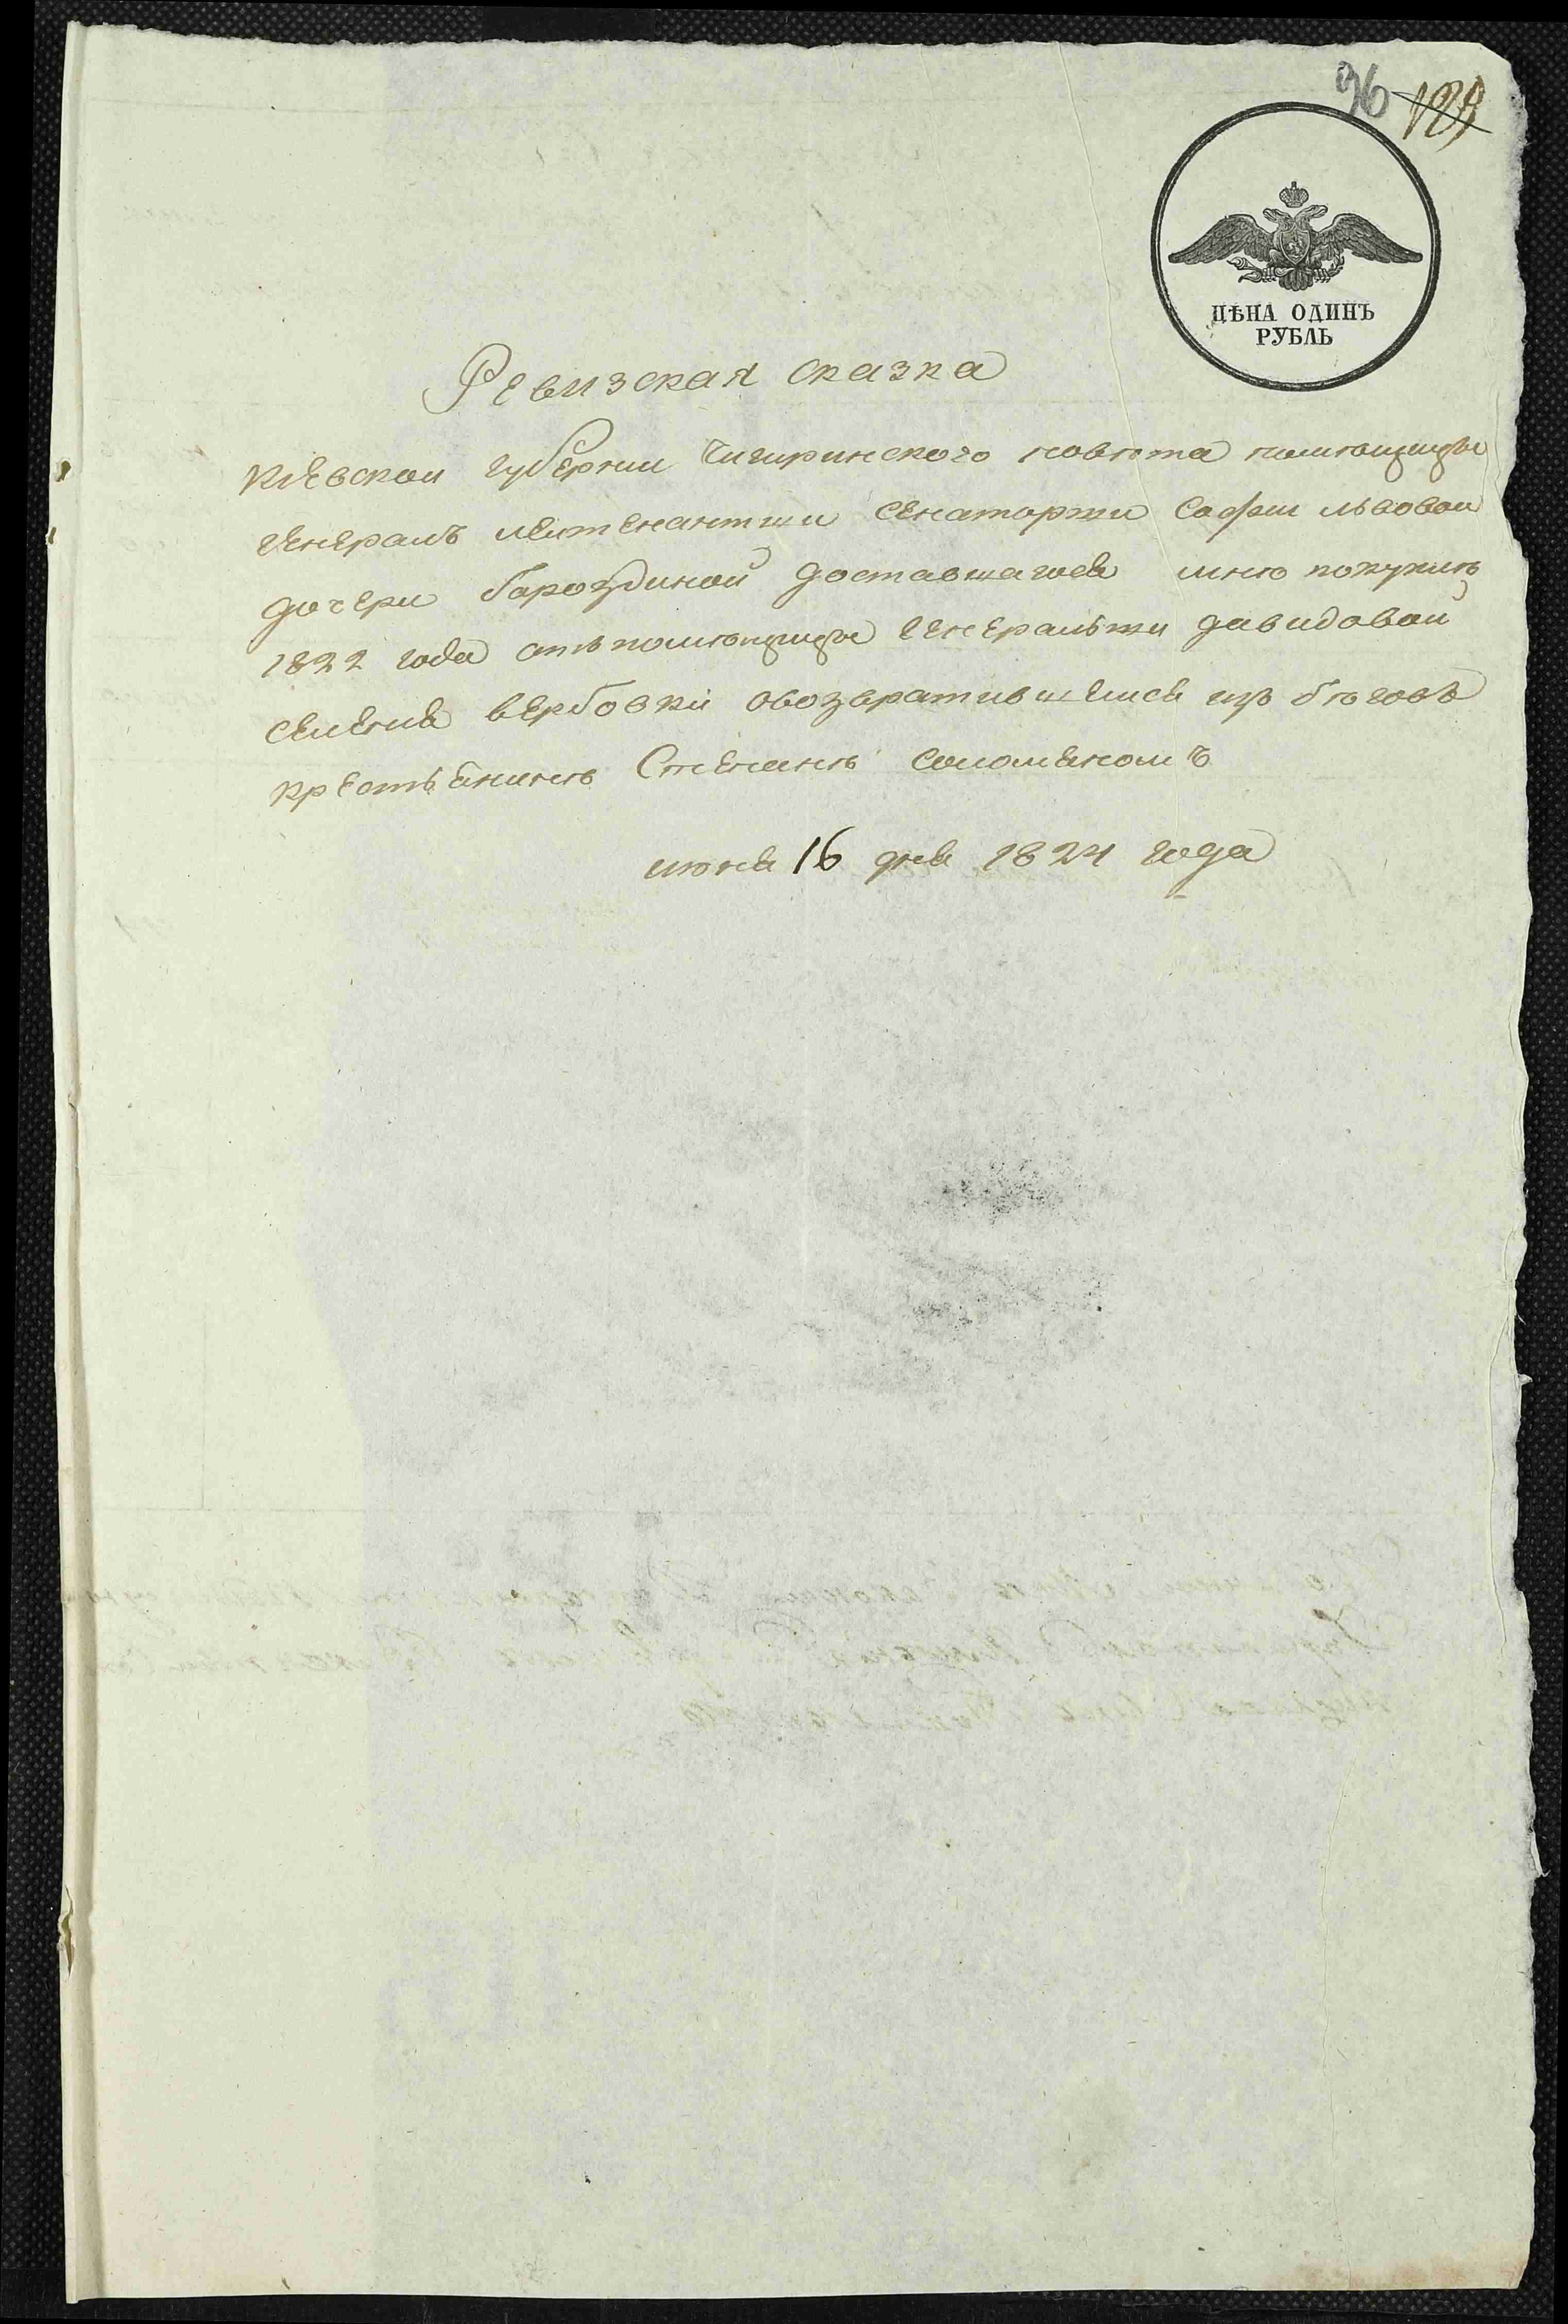 96 189
ЦѢНА ОДИНЪ
РУБЛЬ
Ревизская сказка
Киевской губернии Чигиринского повѣта помѣщицы
генералъ лейтенантши сенаторши Софии львовой
дочери бороздиной доставшагося мнѣ покупкѣ
1822 года отъ помѣщицы генеральши давидовой
селения вербовки овозвратившемся изъ бѣговъ
крестьянинѣ Степанѣ соломеномъ
июня 16 дня 1824 года